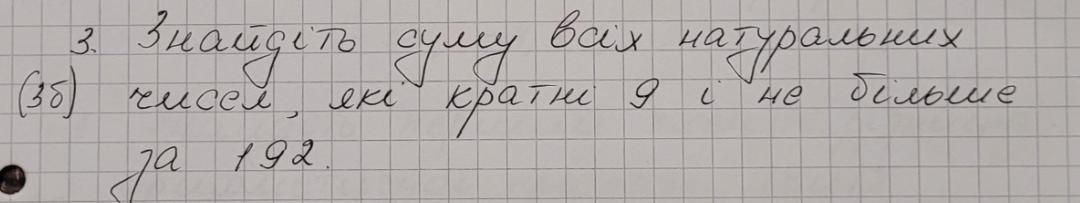 3. Знайдіть суму всіх натуральних
(3б) чисел, які кратні 9 і не більше
за 192.